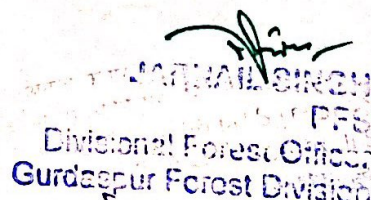 JARNAIL SINGH
PFS
Divisional Forest Officer
Gurdaspur Forest Division